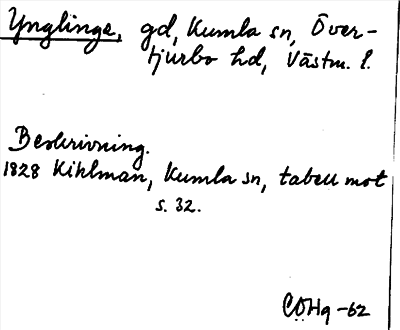 Ynglinge, gd, Kumla sn, Över-
tjurbo hd, Västm. l.
Beskrivning.
1828 Kihlman, Kumla sn, tabell mot
s. 32.
CÖHg -62